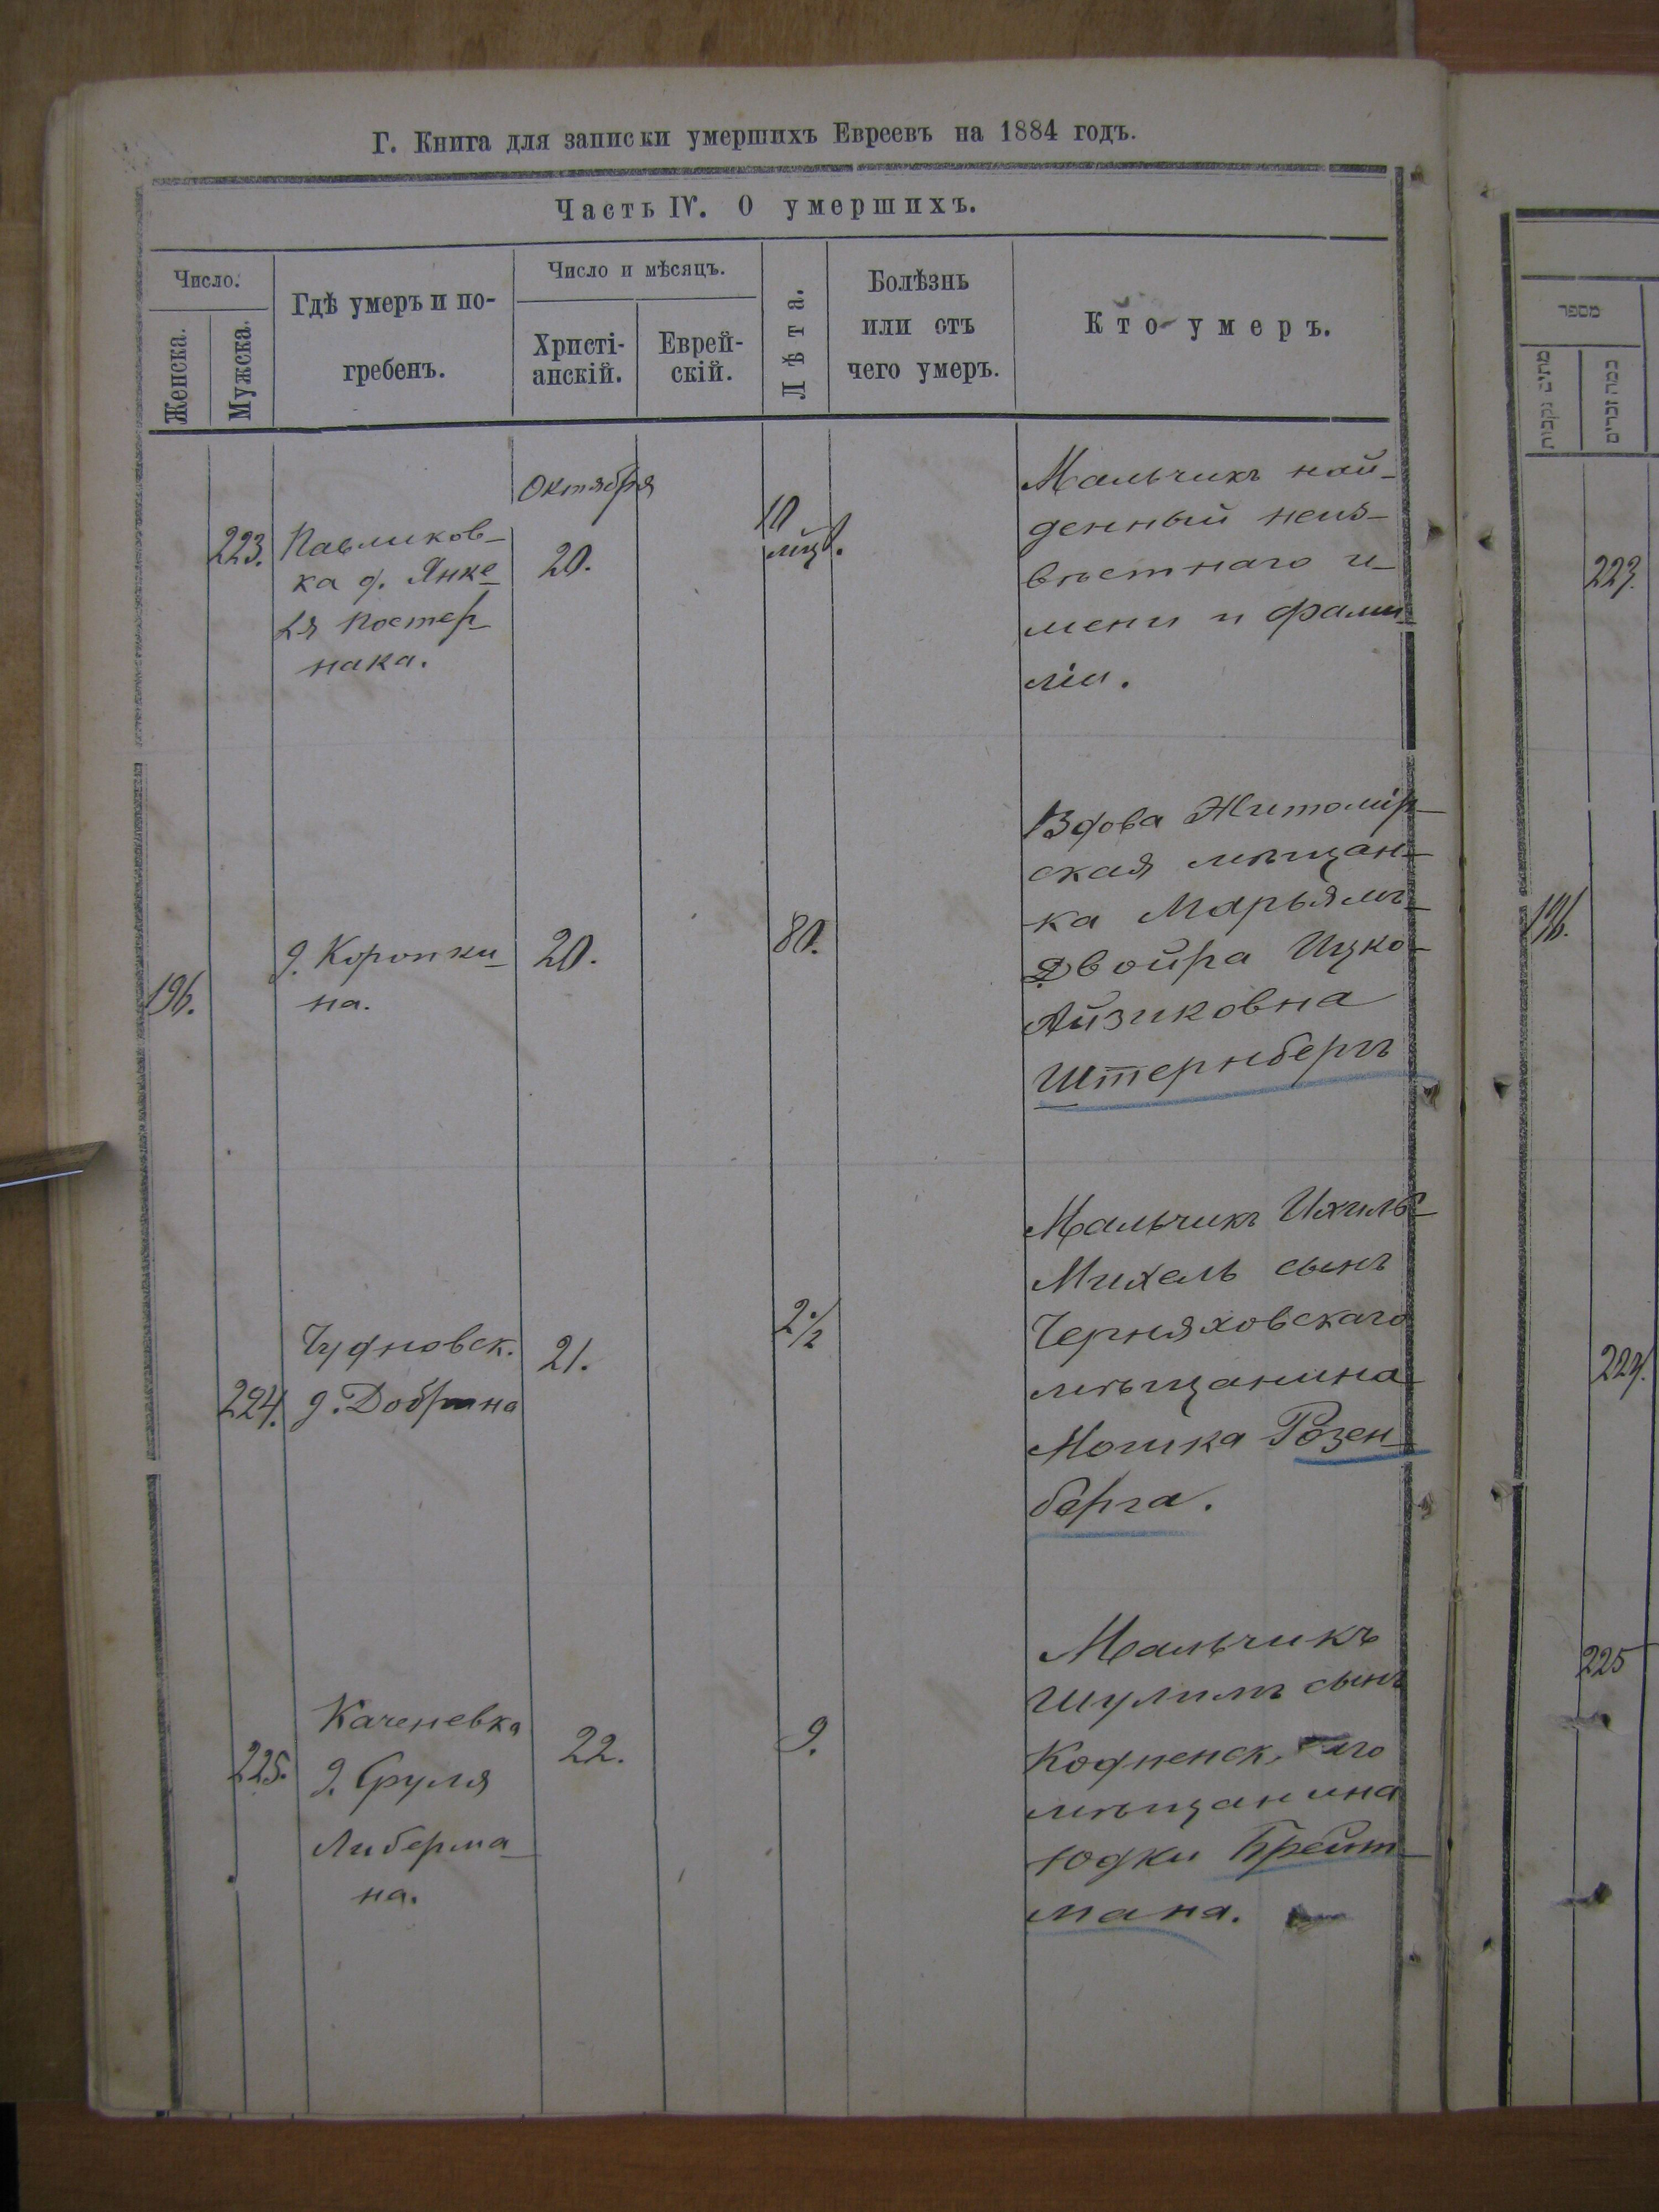 Г. Книга для записки умершихъ Евреевъ на 1884 годъ.
Часть IV. О умершихъ.
Число.
Женска.
Мужска.
Гдѣ умеръ и по-
гребенъ.
Число и мѣсяцъ.
Христі-
анскій.
Еврей-
скій.
Лѣта.
Болѣзнь
или отъ
чего умеръ.
Кто умеръ.
223.
Павликов-
ка д. Янке-
ля Постер-
нака.
Октября
20.
10
мѣц.
Мальчикъ най-
денный неиз-
вѣстнаго и-
мени и фами-
ліи.
196.
д. Коропки-
на.
20.
80.
Вдова Житомір-
ская мѣщан-
ка Марьямъ-
Двойра Ицко-
Айзиковна
Штернбергъ
224.
Чудновск.
д. Добрина
21.
2 1/2
Мальчикъ Ихиль-
Михель сынъ
Черняховскаго
мѣщанина
Мошка Розен-
берга.
225.
Каченевка
д. Сруля
Либерма-
на.
22.
9.
Мальчикъ
Шулимъ сынъ
Кодненск. го
мѣщанина
Юдки Брейт-
мана.
מספר
כמה זכרים
223.
196.
224.
225